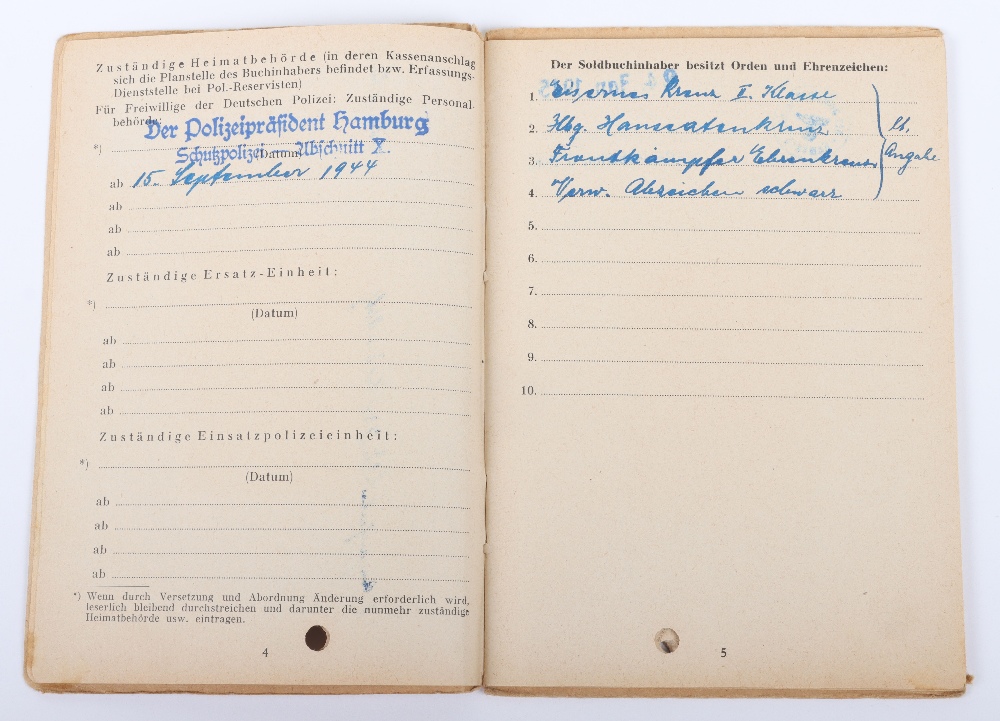 Zuständige Heimatbehörde (in deren Kassenanschlag
sich die Planstelle des Buchinhabers befindet bzw. Erfassungs-
Dienststelle bei Pol.-Reservisten)
Für Freiwillige der Deutschen Polizei: Zuständige Personal-
behörde:
Der Polizeipräsident Hamburg
*)
Schutzpolizei – Abschnitt X.
(Datum)
ab 15. September 1944
ab
ab
ab
Zuständige Ersatz-Einheit:
*)
(Datum)
ab
ab
ab
ab
Zuständige Einsatzpolizeieinheit:
*)
(Datum)
ab
ab
ab
ab
*) Wenn durch Versetzung und Abordnung Änderung erforderlich wird,
leserlich bleibend durchstreichen und darunter die nunmehr zuständige
Heimatbehörde usw. eintragen.
4
Der Soldbuchinhaber besitzt Orden und Ehrenzeichen:
1. Eisernes Kreuz II. Klasse
2. Hbg. Hanseatenkreuz
3. Frontkämpfer Ehrenkreuz
4. Verw. Abzeichen schwarz
lt.
Angabe
5.
6.
7.
8.
9.
10.
5